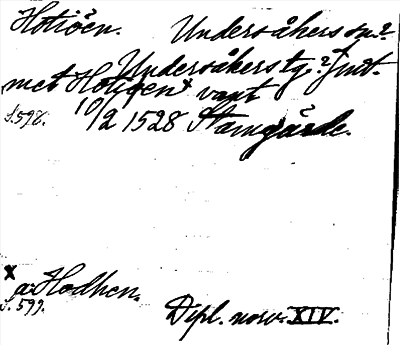 Hotiöen. Undersåkers sn.?
Undersåkers tg.? Jmt.
met Hotjoen x vapt
S. 598. 10/2 1528 Stamgärde.
x
a: Hodhen.
S. 599.
Dipl. norv. XIV.